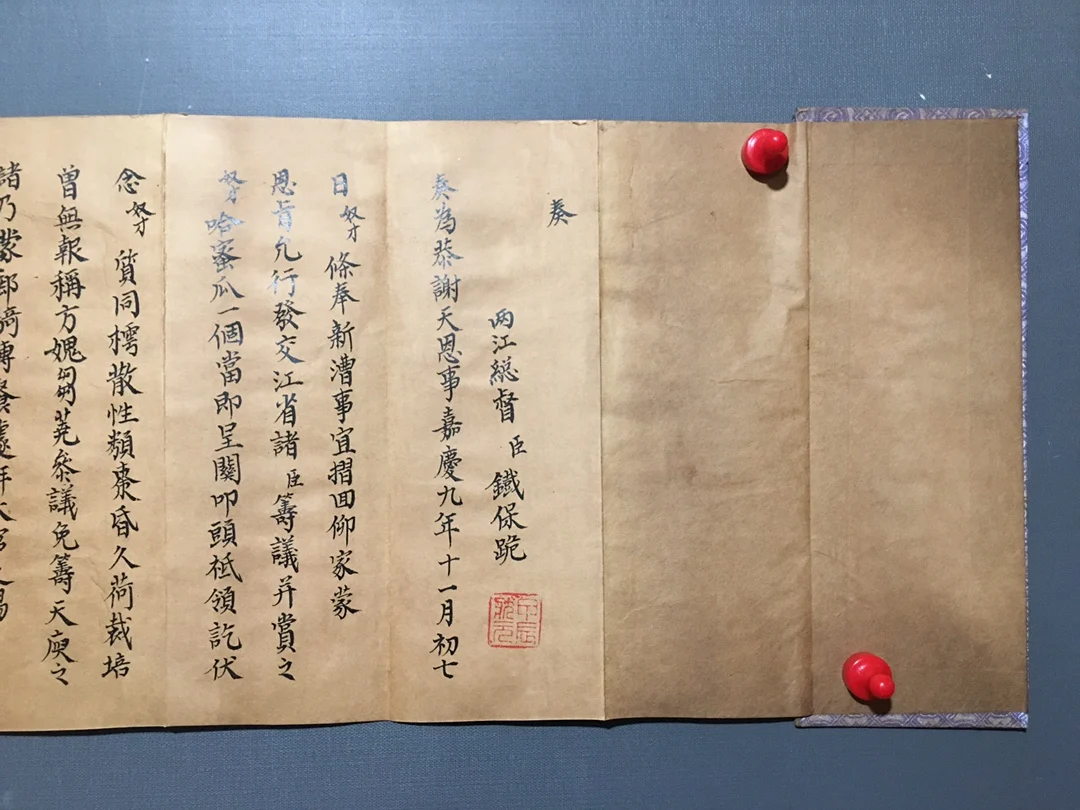 奏
两江総督 臣 鐵保跪
奏為恭謝天恩事嘉慶九年十一月初七
日奴才條奉新漕事宜摺回仰家蒙
恩旨允行發交江省諸臣籌議并賞之
奴才哈蜜瓜一個當即呈闕叩頭祗領訖伏
念奴才質同樗散性類棗昏久荷裁培
曾無報稱方媿芻蕘叅議免籌天庾之
諸乃蒙郵